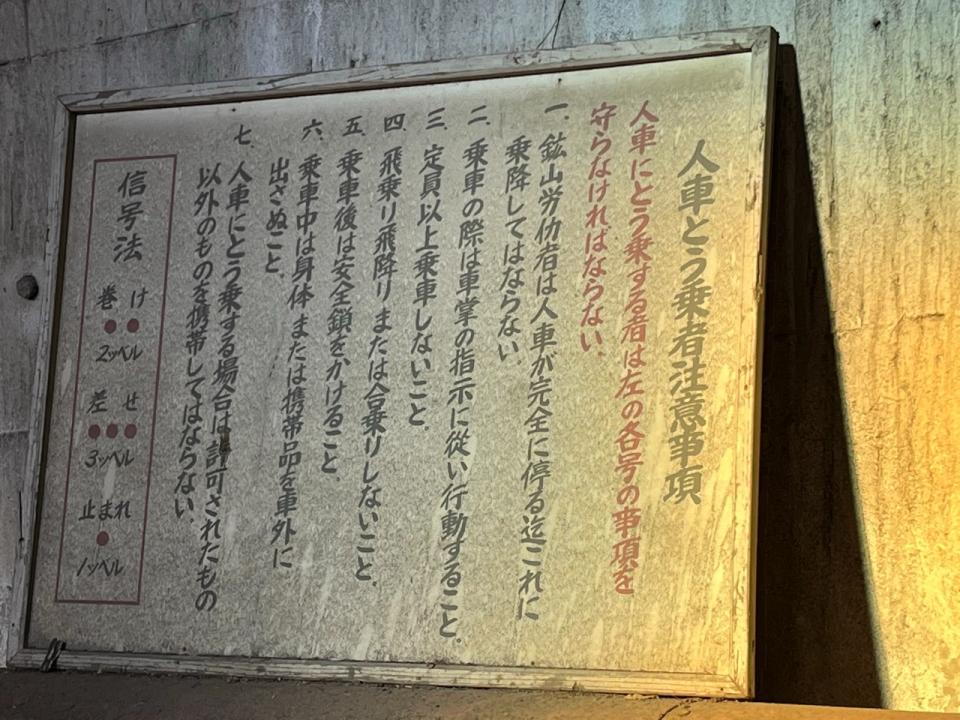 人車とう乗者注意事項
人車にとう乗する者は左の各号の事項を
守らなければならない.
一. 鉱山労仂者は人車が完全に停る迄これに
乗降してはならない.
二. 乗車の際は車掌の指示に従い行動すること.
三. 定員以上乗車しないこと.
四. 飛乗り飛降りまたは合乗りしないこと.
五. 乗車後は安全鎖をかけること.
六. 乗車中は身体または携帯品を車外に
出さぬこと.
七. 人車にとう乗する場合は許可されたもの
以外のものを携帯してはならない.
信号法
巻け
●●
2ッベル
差せ
●●●
3ッベル
止まれ
●
1ッベル